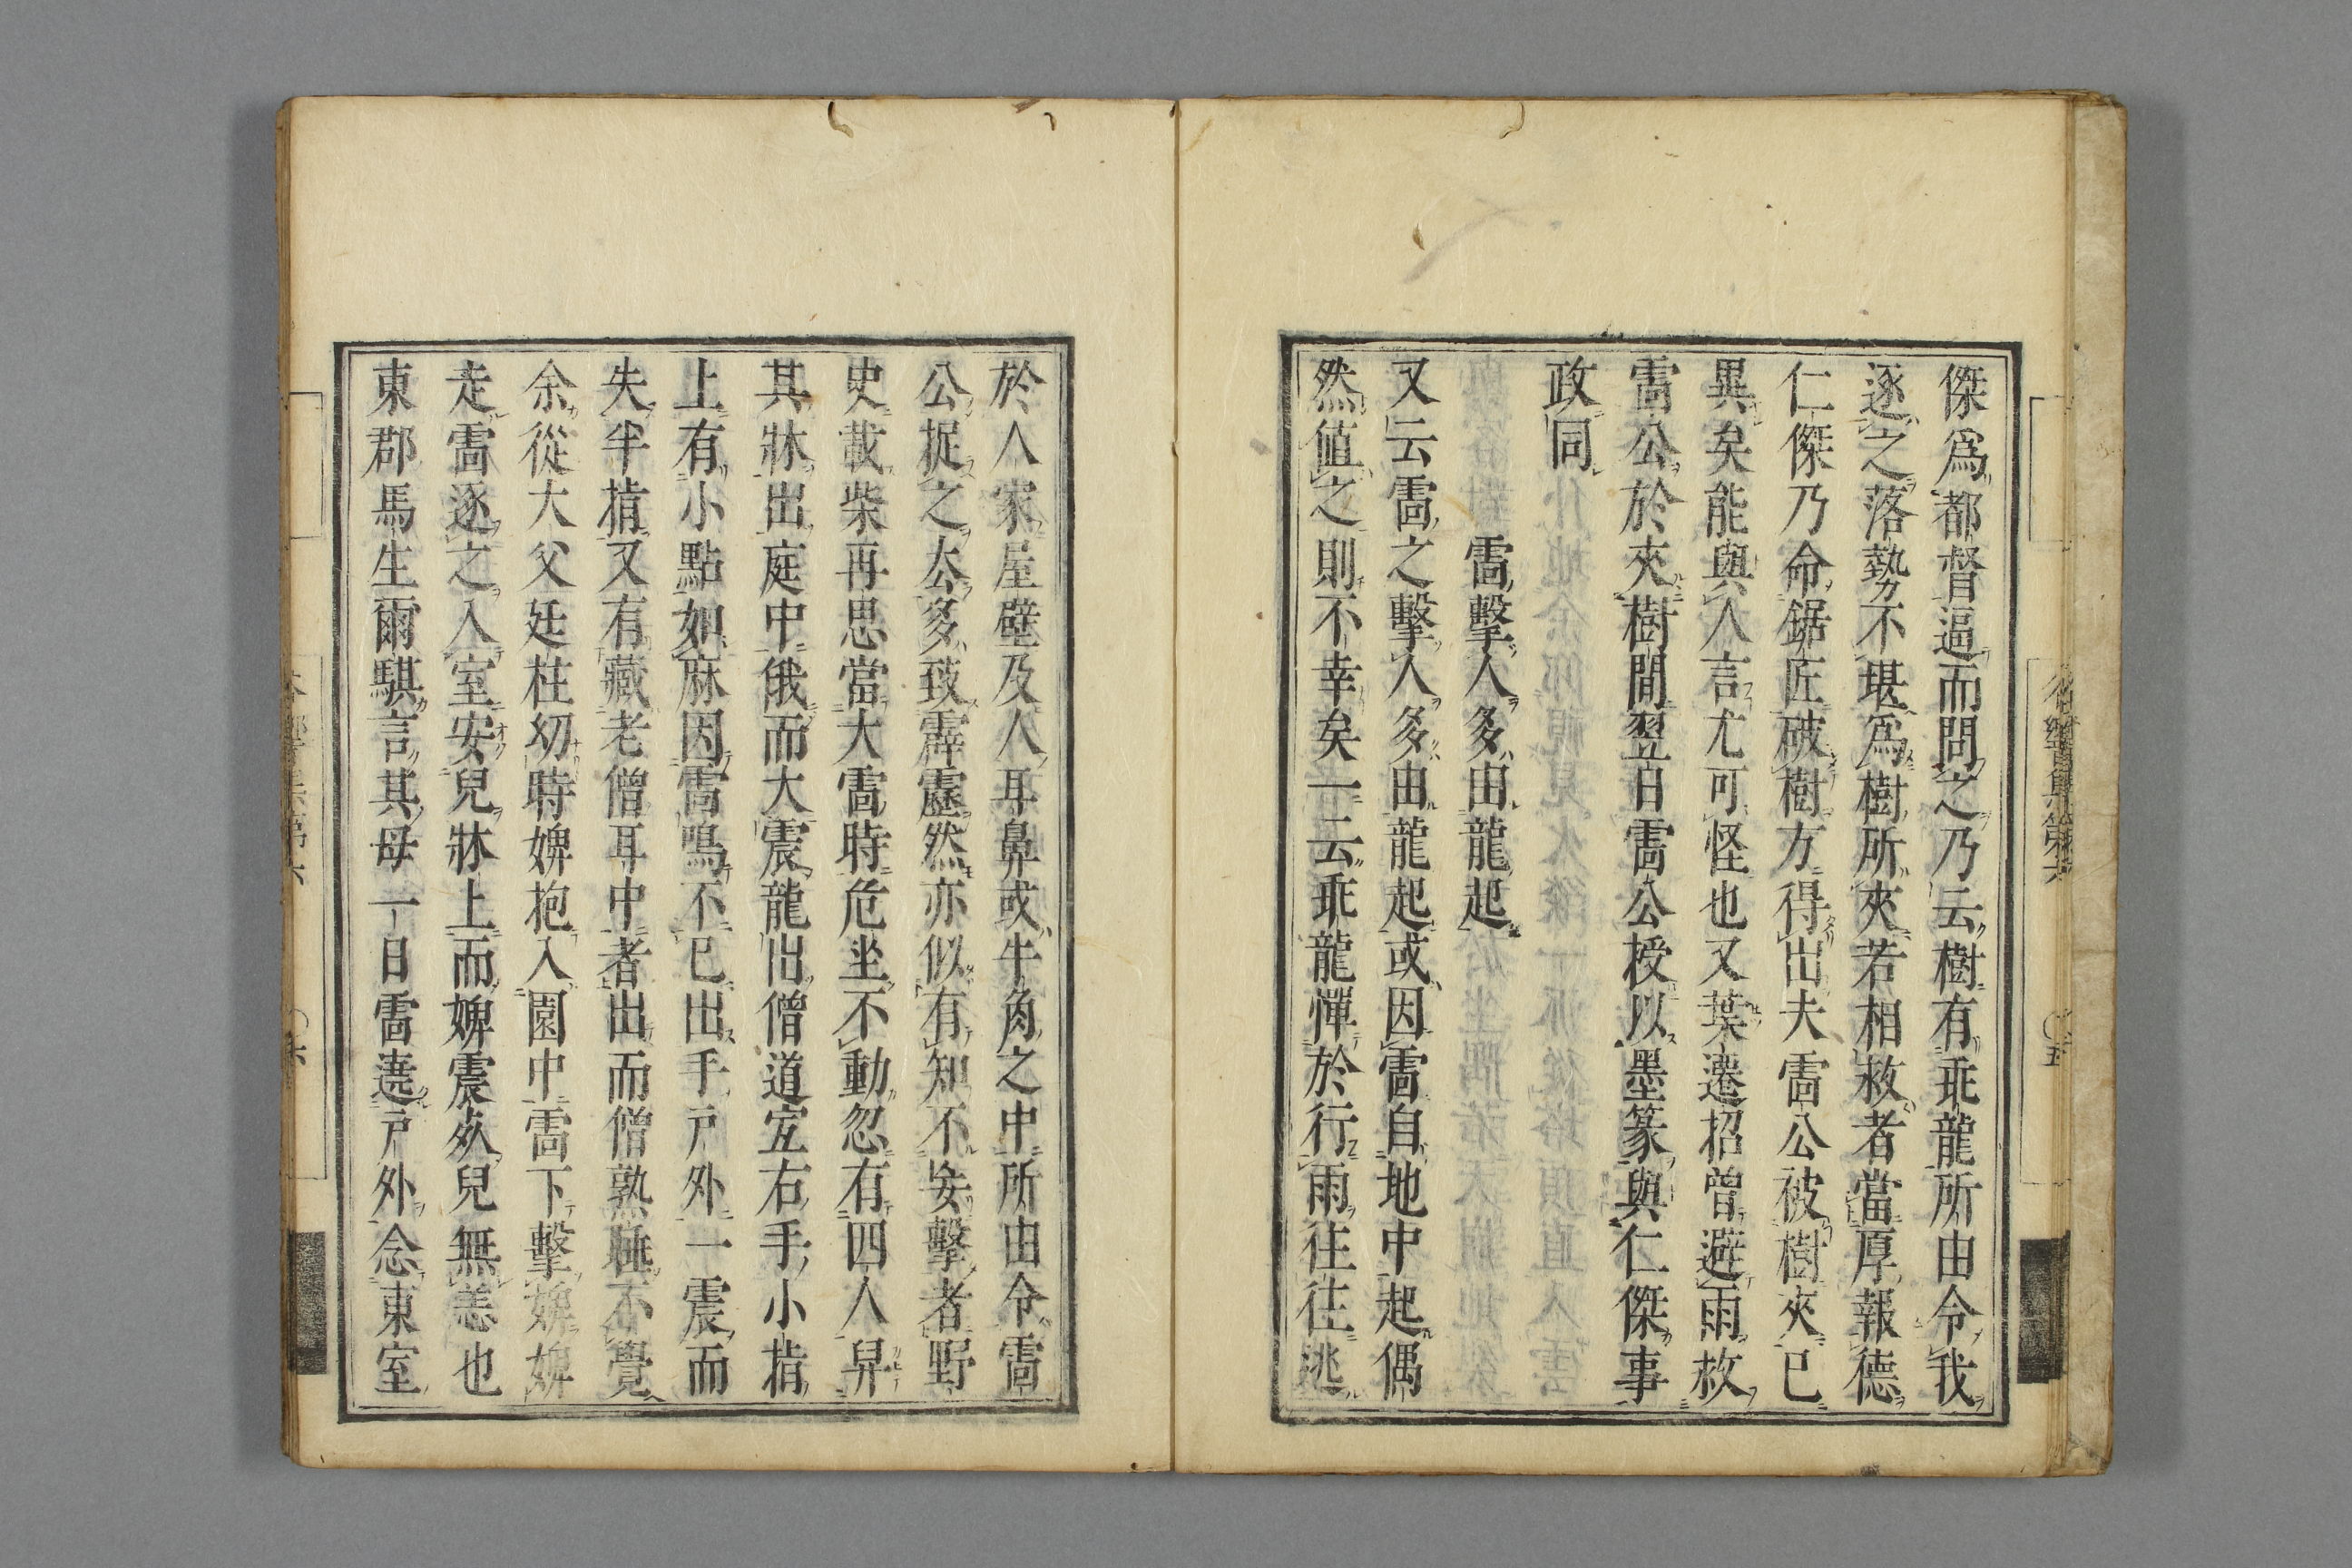 傑爲都督逼而問之乃云樹有乖龍所由令我
逐之落勢不堪爲樹所夾若相救者當厚報德
仁傑乃命鋸匠破樹方得出夫雷公被樹夾已
異矣能與人言尤可怪也又葉遷招曾避雨救
雷公於夾樹間翌日雷公授以墨篆與仁傑事
政同
雷擊人多由龍起
又云雷之擊人多由龍起或因雷自地中起偶
然値之則不幸矣一云乖龍憚於行雨往往逃
於人家屋壁及人耳鼻或牛角之中所由令雷
公捉之去多致霹靂然亦似有知不妄擊者野
史載柴再思當大雷時危坐不動忽有四人舁
其牀出庭中俄而大震龍出僧道宣右手小指
上有小點如麻因雷鳴不已出手戶外一震而
失半指又有藏老僧耳中者出而僧熟睡不覺
余從大父廷柱幼時婢抱入園中雷下擊婢婢
走雷逐之入室安兒牀上而婢震死兒無恙也
東郡馬生爾騏言其母一日雷遶戶外念東室